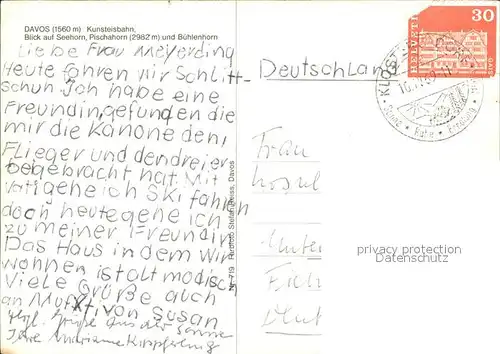 DAVOS (1560 m) Kunsteisbahn,
Blick auf Seehorn, Pischahorn (2982 m) und Bühlenhorn
Liebe Frau Meyerding
Heute fahren wir Schlitt-
schun Ich habe eine
Freundin gefunden die
mir die Kanone den,
Flieger und den dreier
beigebracht hat. Mit
gehe ich Ski fahren
doch heute gehe ich
zu meiner Freundin
Das Haus in dem wir
wohnen ist alt modisch
Viele Grüße auch
an von Susan
Grüße aus der Sonne
Ihre Marianne
Nr. 719 Davos
Deutschland
HELVETIA 30
KLOSTERS
Sonne • Ruhe • Erholung
Frau
privacy protection
Datenschutz